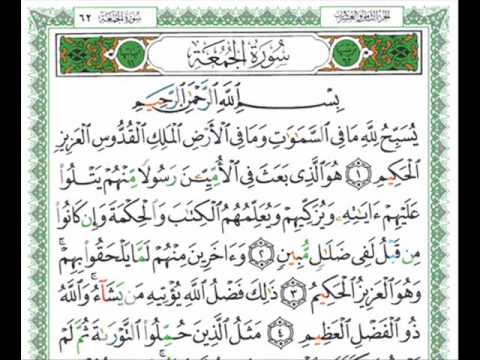 سُورَةُ الجُمُعَةِ ٦٢
سُورَةُ الجُمُعَةِ
بِسْمِ ٱللَّهِ ٱلرَّحْمَٰنِ ٱلرَّحِيمِ
يُسَبِّحُ لِلَّهِ مَا فِى ٱلسَّمَٰوَٰتِ وَمَا فِى ٱلْأَرْضِ ٱلْمَلِكِ ٱلْقُدُّوسِ ٱلْعَزِيزِ
ٱلْحَكِيمِ ١ هُوَ ٱلَّذِى بَعَثَ فِى ٱلْأُمِّيِّـۧنَ رَسُولًا مِّنْهُمْ يَتْلُوا۟
عَلَيْهِمْ ءَايَٰتِهِۦ وَيُزَكِّيهِمْ وَيُعَلِّمُهُمُ ٱلْكِتَٰبَ وَٱلْحِكْمَةَ وَإِن كَانُوا۟
مِن قَبْلُ لَفِى ضَلَٰلٍ مُّبِينٍ ٢ وَءَاخَرِينَ مِنْهُمْ لَمَّا يَلْحَقُوا۟ بِهِمْ ۚ
وَهُوَ ٱلْعَزِيزُ ٱلْحَكِيمُ ٣ ذَٰلِكَ فَضْلُ ٱللَّهِ يُؤْتِيهِ مَن يَشَآءُ ۚ وَٱللَّهُ
ذُو ٱلْفَضْلِ ٱلْعَظِيمِ ٤ مَثَلُ ٱلَّذِينَ حُمِّلُوا۟ ٱلتَّوْرَىٰةَ ثُمَّ لَمْ